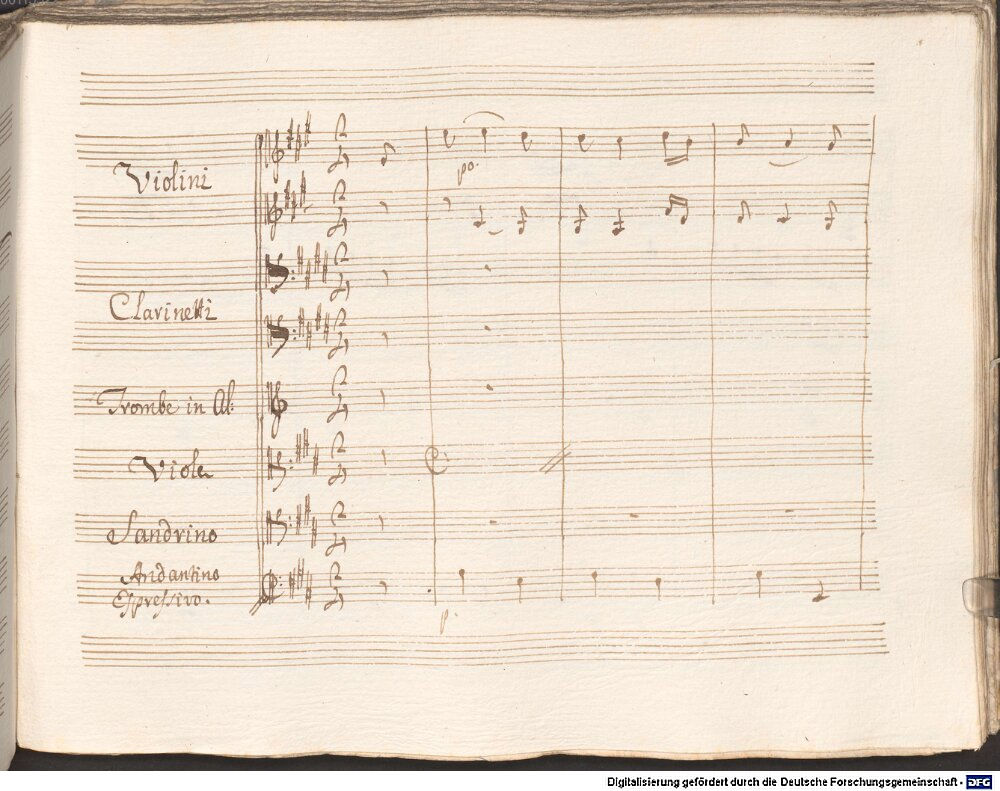 Violini
po.
Clarinetti
Trombe in Al:
Viole
Sandrino
Andantino
Espressivo.
p.
Digitalisierung gefördert durch die Deutsche Forschungsgemeinschaft - DFG